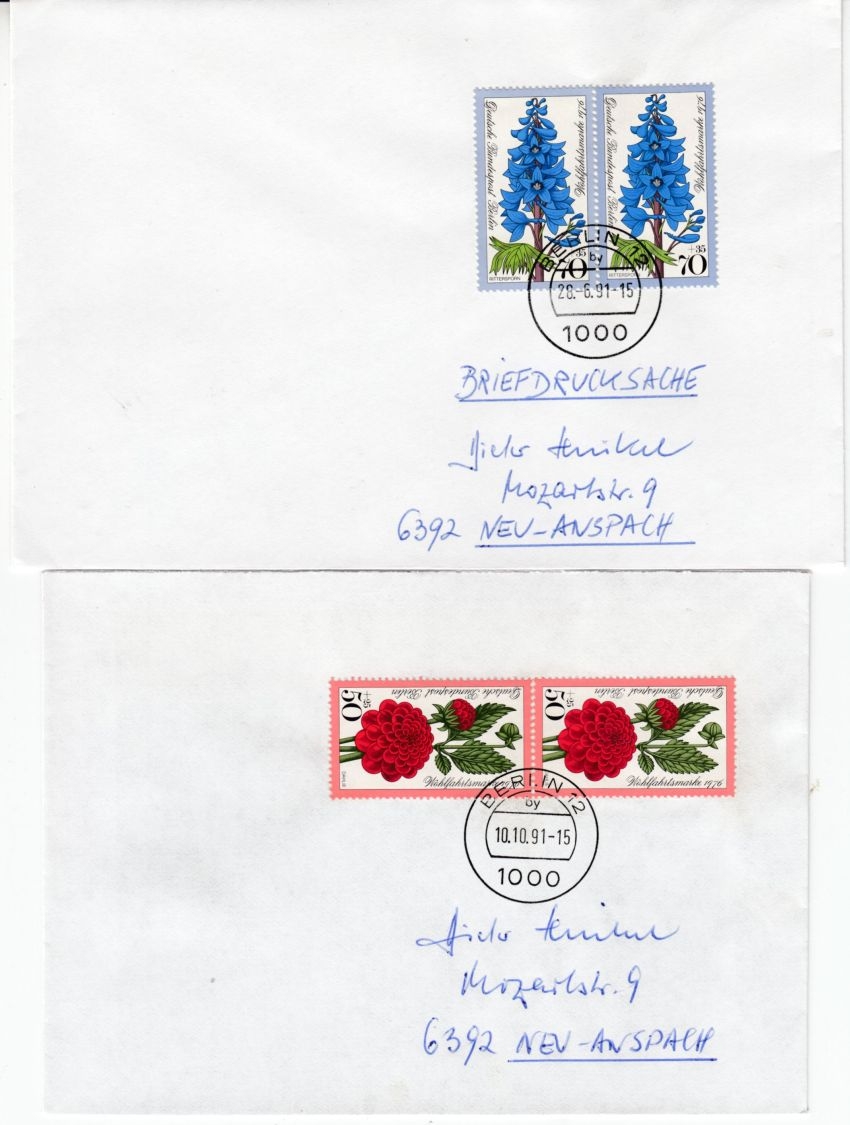 Deutsche Bundespost Berlin
Wohlfahrtsmarke 1976
+35
70
RITTERSPORN
Deutsche Bundespost Berlin
Wohlfahrtsmarke 1976
+35
70
RITTERSPORN
BERLIN 12
by
28.-6.91-15
1000
BRIEFDRUCKSACHE
Mozartstr. 9
6392 NEU-ANSPACH
Deutsche Bundespost Berlin
50
+25
Wohlfahrtsmarke 1976
DAHLIE
Deutsche Bundespost Berlin
50
+25
Wohlfahrtsmarke 1976
BERLIN 12
by
10.10.91-15
1000
Mozartstr. 9
6392 NEU-ANSPACH